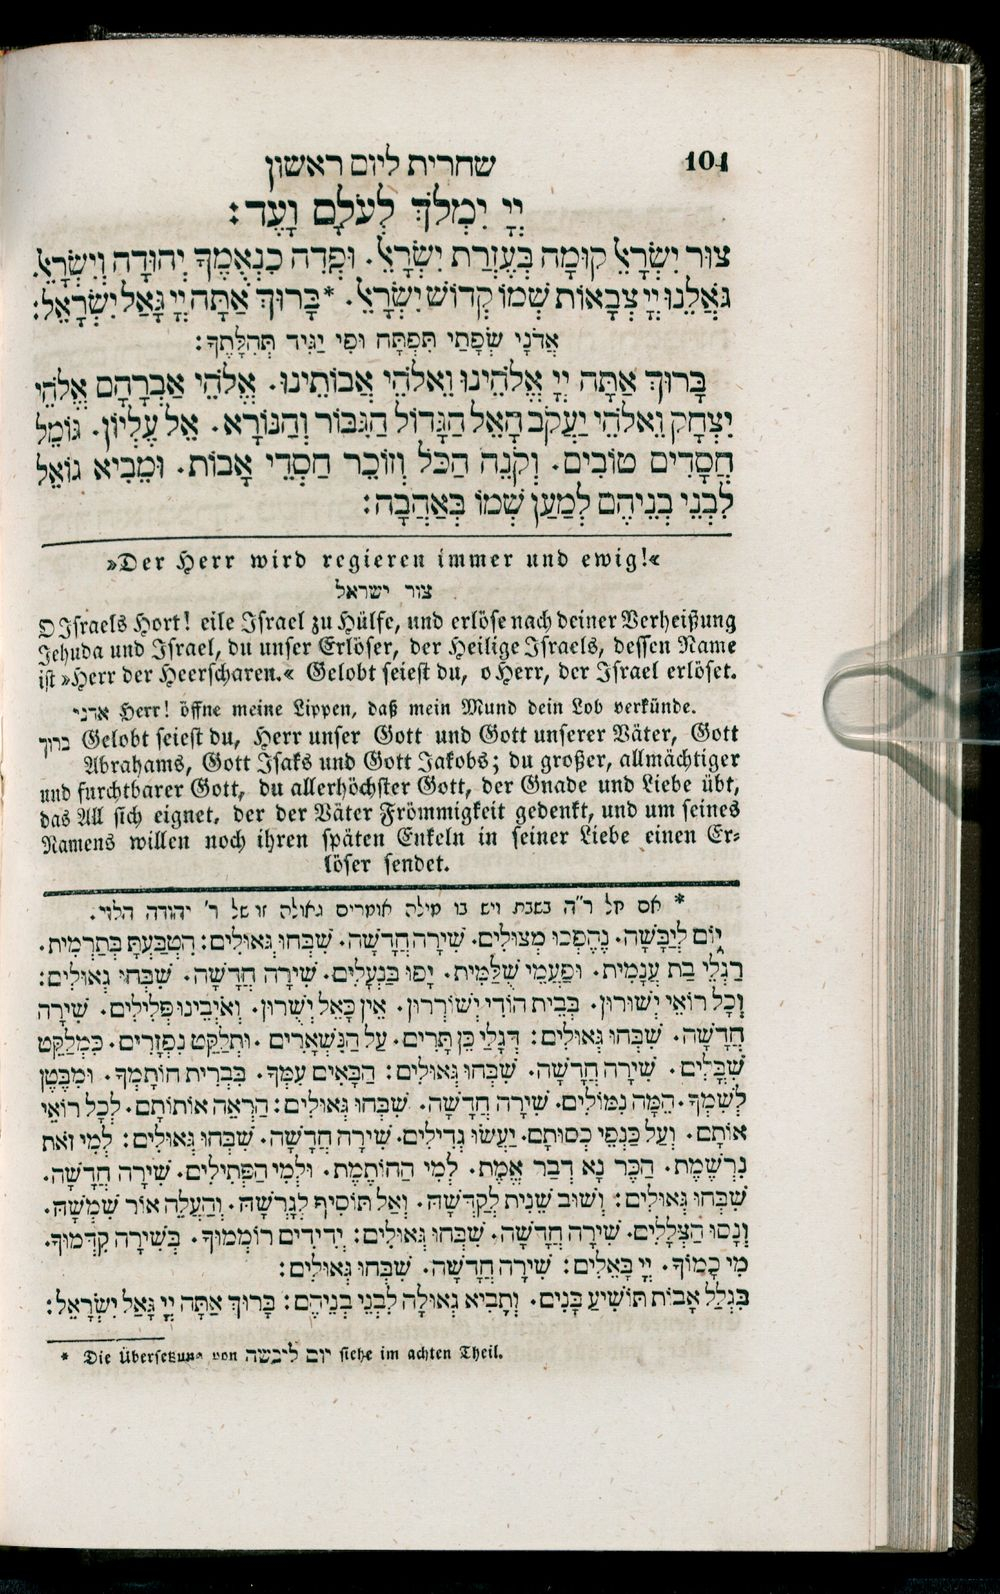 104
שחרית ליום ראשון
יְיָ יִמְלֹךְ לְעֹלָם וָעֶד:
צוּר יִשְׂרָאֵל קוּמָה בְּעֶזְרַת יִשְׂרָאֵל. וּפְדֵה כִנְאֻמֶךָ יְהוּדָה וְיִשְׂרָאֵל.
גֹּאֲלֵנוּ יְיָ צְבָאוֹת שְׁמוֹ קְדוֹשׁ יִשְׂרָאֵל. *בָּרוּךְ אַתָּה יְיָ גָּאַל יִשְׂרָאֵל:
אֲדֹנָי שְׂפָתַי תִּפְתָּח וּפִי יַגִּיד תְּהִלָּתֶךָ:
בָּרוּךְ אַתָּה יְיָ אֱלֹהֵינוּ וֵאלֹהֵי אֲבוֹתֵינוּ. אֱלֹהֵי אַבְרָהָם אֱלֹהֵי
יִצְחָק וֵאלֹהֵי יַעֲקֹב הָאֵל הַגָּדוֹל הַגִּבּוֹר וְהַנּוֹרָא. אֵל עֶלְיוֹן. גּוֹמֵל
חֲסָדִים טוֹבִים. וְקֹנֵה הַכֹּל וְזוֹכֵר חַסְדֵי אָבוֹת. וּמֵבִיא גוֹאֵל
לִבְנֵי בְנֵיהֶם לְמַעַן שְׁמוֹ בְּאַהֲבָה:
»Der Herr wird regieren immer und ewig!«
צור ישראל
O Israels Hort! eile Israel zu Hülfe, und erlöse nach deiner Verheißung
Jehuda und Israel, du unser Erlöser, der Heilige Israels, dessen Name
ist »Herr der Heerscharen.« Gelobt seiest du, o Herr, der Israel erlöset.
אדני Herr! öffne meine Lippen, daß mein Mund dein Lob verkünde.
ברוך Gelobt seiest du, Herr unser Gott und Gott unserer Väter, Gott
Abrahams, Gott Isaks und Gott Jakobs; du großer, allmächtiger
und furchtbarer Gott, du allerhöchster Gott, der Gnade und Liebe übt,
das All sich eignet, der der Väter Frömmigkeit gedenkt, und um seines
Namens willen noch ihren späten Enkeln in seiner Liebe einen Er-
löser sendet.
* אם חל ר"ה בשבת ויש בו מילה אומרים גאולה זו של ר' יהודה הלוי.
יוֹם לְיַבָּשָׁה. נֶהֶפְכוּ מְצוּלִים. שִׁירָה חֲדָשָׁה. שִׁבְּחוּ גְּאוּלִים: הִטְבַּעְתָּ בְּתַרְמִית.
רַגְלֵי בַת עֲנָמִית. וּפַעֲמֵי שֻׁלַּמִּית. יָפוּ בַּנְּעָלִים. שִׁירָה חֲדָשָׁה. שִׁבְּחוּ גְאוּלִים:
וְכָל רוֹאֵי יְשׁוּרוּן. בְּבֵית הוֹדִי יְשׁוֹרְרוּן. אֵין כָּאֵל יְשֻׁרוּן. וְאוֹיְבֵינוּ פְּלִילִים. שִׁירָה
חֲדָשָׁה. שִׁבְּחוּ גְּאוּלִים: דְּגָלַי כֵּן תָּרִים. עַל הַנִּשְׁאָרִים. וּתְלַקֵּט נִפְזָרִים. כִּמְלַקֵּט
שִׁבֳּלִים. שִׁירָה חֲדָשָׁה. שִׁבְּחוּ גְּאוּלִים: הַבָּאִים עִמְּךָ. בִּבְרִית חוֹתָמֶךָ. וּמִבֶּטֶן
לְשִׁמְךָ. הֵמָּה נִמּוֹלִים. שִׁירָה חֲדָשָׁה. שִׁבְּחוּ גְּאוּלִים: הַרְאֵה אוֹתוֹתָם. לְכָל רוֹאֵי
אוֹתָם. וְעַל כַּנְפֵי כְסוּתָם. יַעֲשׂוּ גְדִילִים. שִׁירָה חֲדָשָׁה. שִׁבְּחוּ גְּאוּלִים: לְמִי זֹאת
נִרְשֶׁמֶת. הַכֶּר נָא דְבַר אֱמֶת. לְמִי הַחוֹתֶמֶת. וּלְמִי הַפְּתִילִים. שִׁירָה חֲדָשָׁה.
שִׁבְּחוּ גְּאוּלִים: וְשׁוּב שֵׁנִית לְקַדְּשָׁהּ. וְאַל תּוֹסִיף לְגָרְשָׁהּ. וְהַעֲלֵה אוֹר שִׁמְשָׁהּ.
וְנָסוּ הַצְּלָלִים. שִׁירָה חֲדָשָׁה. שִׁבְּחוּ גְּאוּלִים: יְדִידִים רוֹמְמוּךָ. בְּשִׁירָה קִדְּמוּךָ.
מִי כָמוֹךָ. יְיָ בָּאֵלִים: שִׁירָה חֲדָשָׁה. שִׁבְּחוּ גְּאוּלִים:
בִּגְלַל אָבוֹת תּוֹשִׁיעַ בָּנִים. וְתָבִיא גְאוּלָה לִבְנֵי בְנֵיהֶם: בָּרוּךְ אַתָּה יְיָ גָּאַל יִשְׂרָאֵל:
* Die Übersetzung von יום ליבשה siehe im achten Theil.